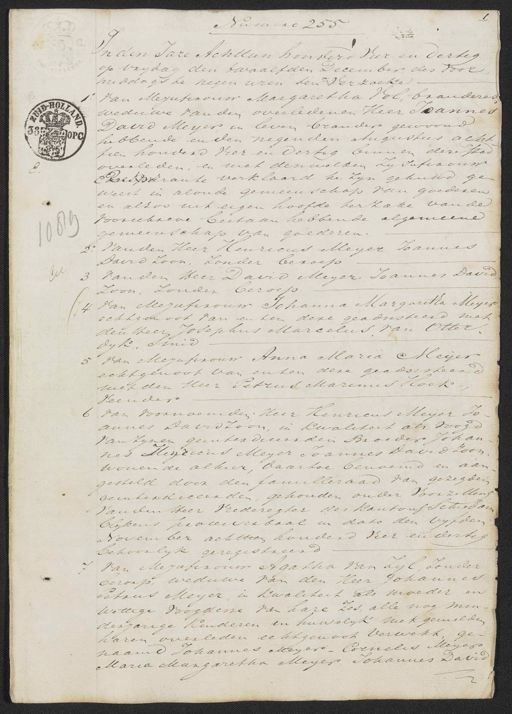 1
Numero 255
In den Jare Achttien honderd Vier en dertig
op vrydag den twaalfden December des voor
middags te negen uren ten Verzoeke
1 Van Mejufvrouw Margaretha Zyl, branderes
weduwe van den overledenen Heer Joannes
David Meyer in leven brander gewoond
hebbende en den negenden Augustus acht
tien honderd Vier en Dertig binnen deze Stad
overleden, en met denzelven zy Jufvrouw
verklaard te zyn gehuwd ge
weest in alonde gemeenschap van goederen
en alzoo uit eigen hoofde ter zake van de
voorschreve Costuum hebbende algemeene
gemeenschap van goederen.
2 Van den Heer Henricus Meyer Joannes
David Zoon, Zonder beroep
3 Van den Heer David Meyer Joannes David
Zoon, Zonder beroep
4 Van Mejufvrouw Johanna Margaretha Meyer
echtgenoot van en ten deze geadsisteerd met
den Heer Josephus Marcelus van Otter
dyk, Smid
5 Van Mejufvrouw Anna Maria Meyer
echtgenoot van en ten deze geadsisteerd
met den Heer Petrus Marcinus Kock,
6 Van voornoemden Heer Henricus Meyer Jo-
annes David Zoon, in kwaliteit als voogd
van zynen geinterdiceerden Broeder Johan-
nes Meyer Joannes David Zoon,
wonende alhier, daartoe benoemd en aan-
gesteld door den familieraad van gezegden
geinterdiceerden, gehouden onder Voorzitting
van den Heer Vrederegter des kantons Schiedam
blykens proces verbaal in dato den vyfden
November achttien honderd vier en dertig
behoorlyk geregistreerd
7 Van Mejufvrouw Agatha van Zyl, Zonder
beroep weduwe van den Heer Johannes
Petrus Meyer, in kwaliteit als moeder en
wettige voogdesse van hare Zes alle nog min
derjarige Kinderen en huwelyk met gemelden
haren overleden echtgenoot Verwekt, ge-
naamd Johannes Meyer, Cornelus Meyer
Maria Margaretha Meyer Johannes David
ZUID-HOLLAND
OPC
1089
2